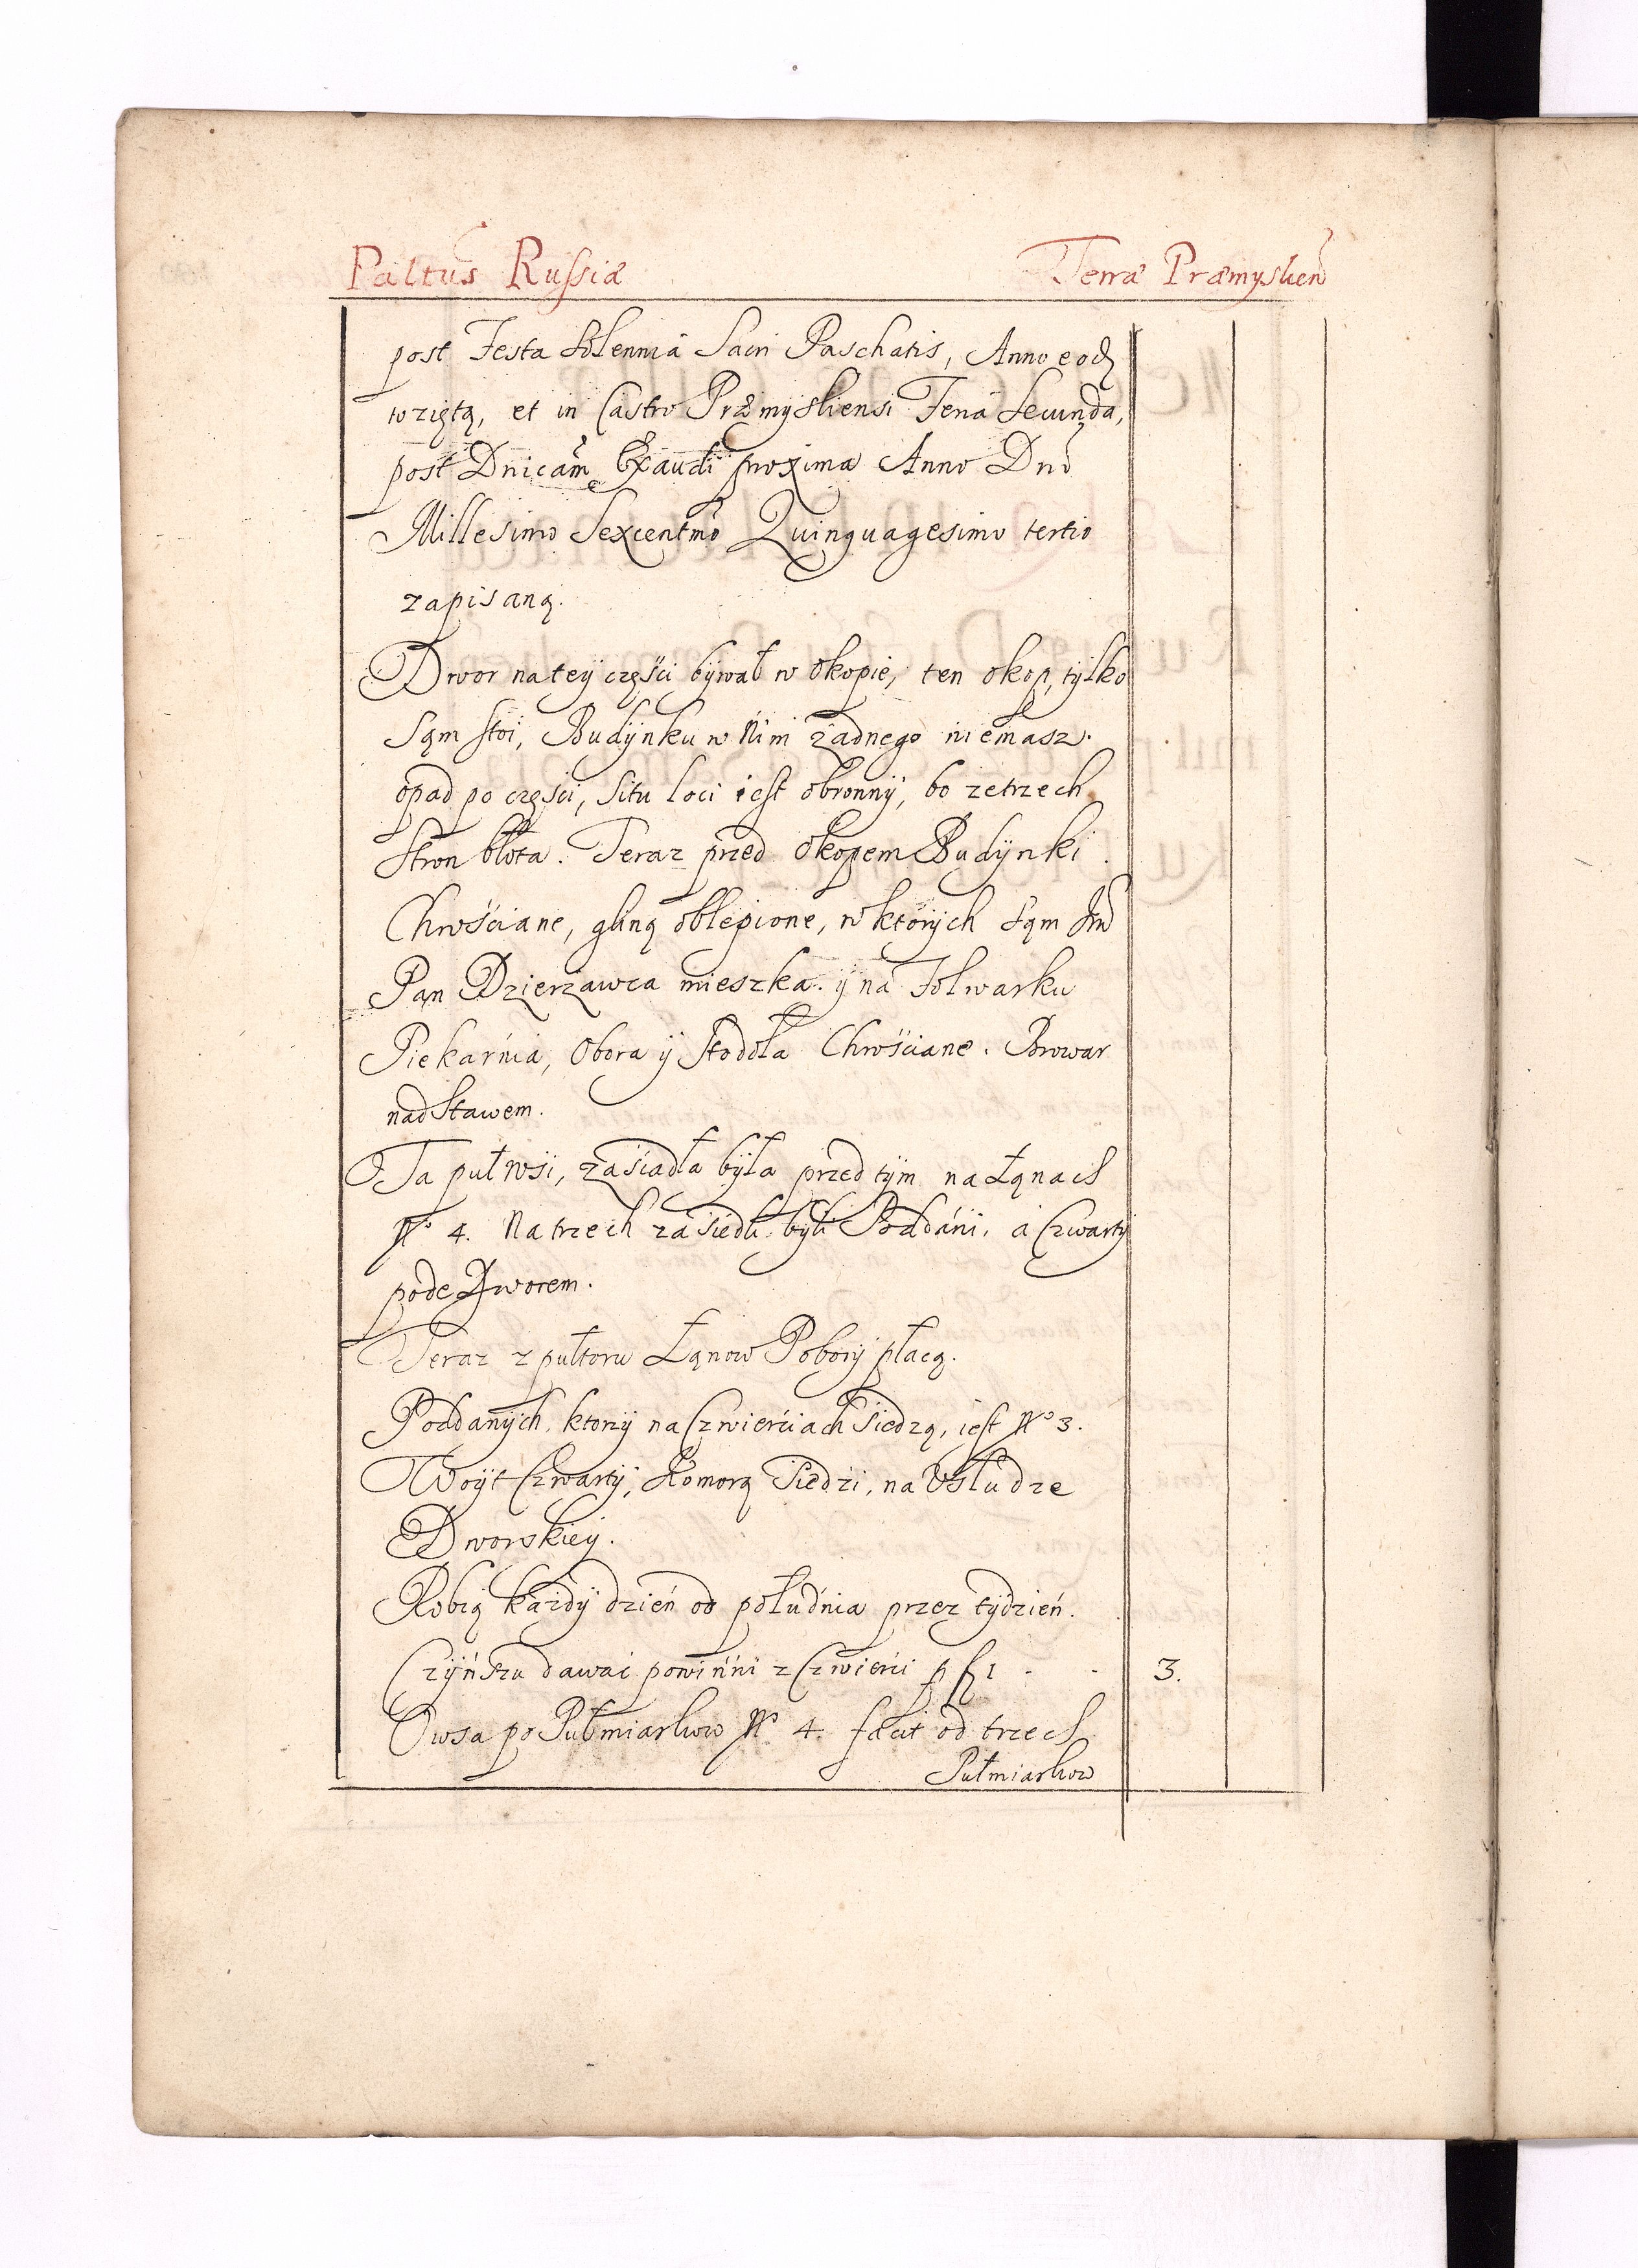 Paltus Russiæ Terræ Præmyslien
post Festa Solennia Sacri Paschatis, Anno eod
wziętą, et in Castro Præmysliensi Feria Secunda,
post Dnicam Exaudi proxima Anno Dni
Millesimo Sexcentmo Quinquagesimo tertio
zapisaną.
Dwor na teÿ części bÿwał w okopie, ten okop, tÿlko
Sąm stoi, Budÿnku w Nim żadnego niemasz.
opad po części, situ loci iest obronnÿ, bo ze trzech
Stron błota. Teraz przed okopem Budÿnki.
Chrościane, gliną oblepione, w ktorÿch sąm Jm
Pan Dzierżawca mieszka. ÿ na Folwarku
Piekarńia, Obora ÿ Stodoła Chrościane. Browar
nad Stawem.
Ta puł wsi, zasiadła bÿła przed tÿm na Łąnach
No 4. Na trzech zaśiedli bÿli Poddáni, a Czwartÿ
pode Dworem.
Teraz z pułtoru Łąnow Poborÿ płacą.
Poddanÿch, ktorzÿ na Czwierćiach śiedzą, iest No 3.
Woÿt Czwartÿ, Komorą Siedzi, na Usłudze
Dworskieÿ.
Robią każdÿ dzień od połudńia przez tÿdzień.
Czÿńszu dawać powińńi z Czwierći p fl 1 - - 3.
Owsa po Pułmiarkow No 4. facit od trzech
Pułmiarkow